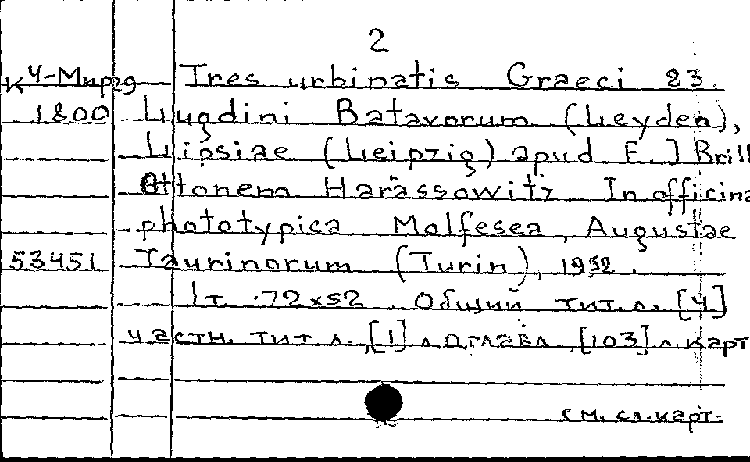 2
К 4-Мир29 Tres urbinatis Graeci 23.
1800 Lugdini Batavorum (Leyden),
Lipsiae (Leipzig) apud E. J Brill
Ottonem Harassowitz In officina
phototypica Molfesea, Augustae
53451 Taurinorum (Turin), 1932.
1т. 72x52 Общий тит.л. [4]
частн. тит л., [1] л оглавл [103] л карт
см. сл.карт.